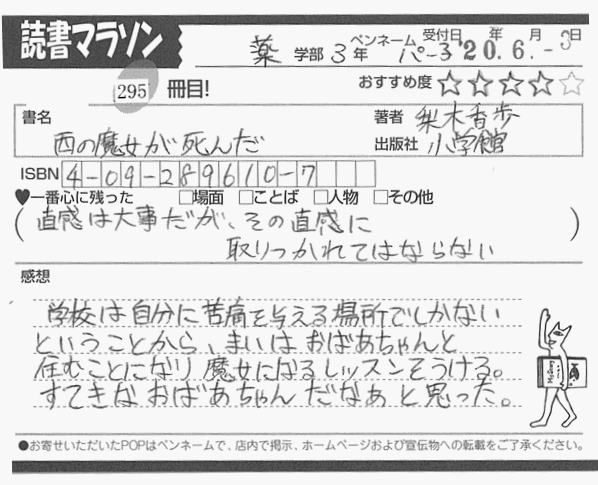 読書マラソン
薬 学部 3年 ペンネーム パーヂ 受付日 '20.6.-3 年 月 日
295 冊目! おすすめ度 ☆☆☆☆☆
書名 西の魔女が死んだ
著者 梨木香歩
出版社 小学館
ISBN 4-09-289610-7
♥一番心に残った □場面 □ことば □人物 □その他
(直感は大事だが、その直感に
取りつかれてはならない)
感想
学校は自分に苦痛を与える場所でしかない
ということから、まいはおばあちゃんと
住むことになり魔女になるレッスンをうける。
すてきなおばあちゃんだなあと思った。
●お寄せいただいたPOPはペンネームで、店内で掲示、ホームページおよび宣伝物への転載をご了承ください。